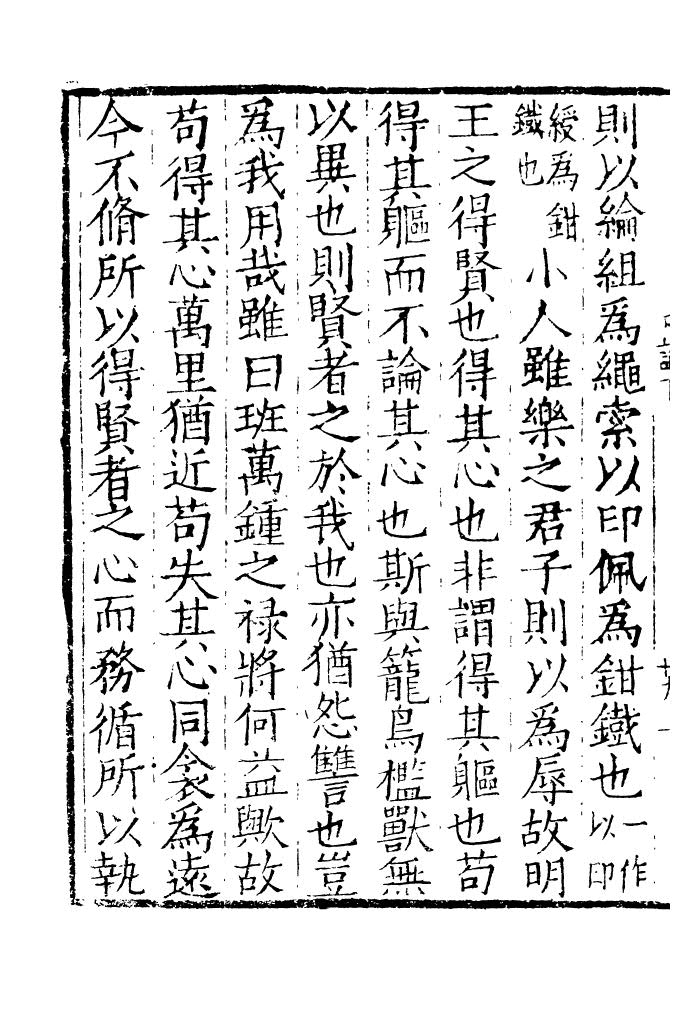 則以綸組爲繩索以印佩爲鉗鐵也一作以印
綬爲鉗鐵也小人雖樂之君子則以爲辱故明
王之得賢也得其心也非謂得其軀也苟
得其軀而不論其心也斯與籠鳥檻獸無
以異也則賢者之於我也亦猶怨讐也豈
爲我用哉雖曰班萬鍾之祿將何益歟故
苟得其心萬里猶近苟失其心同衾爲遠
今不脩所以得賢者之心而務循所以執